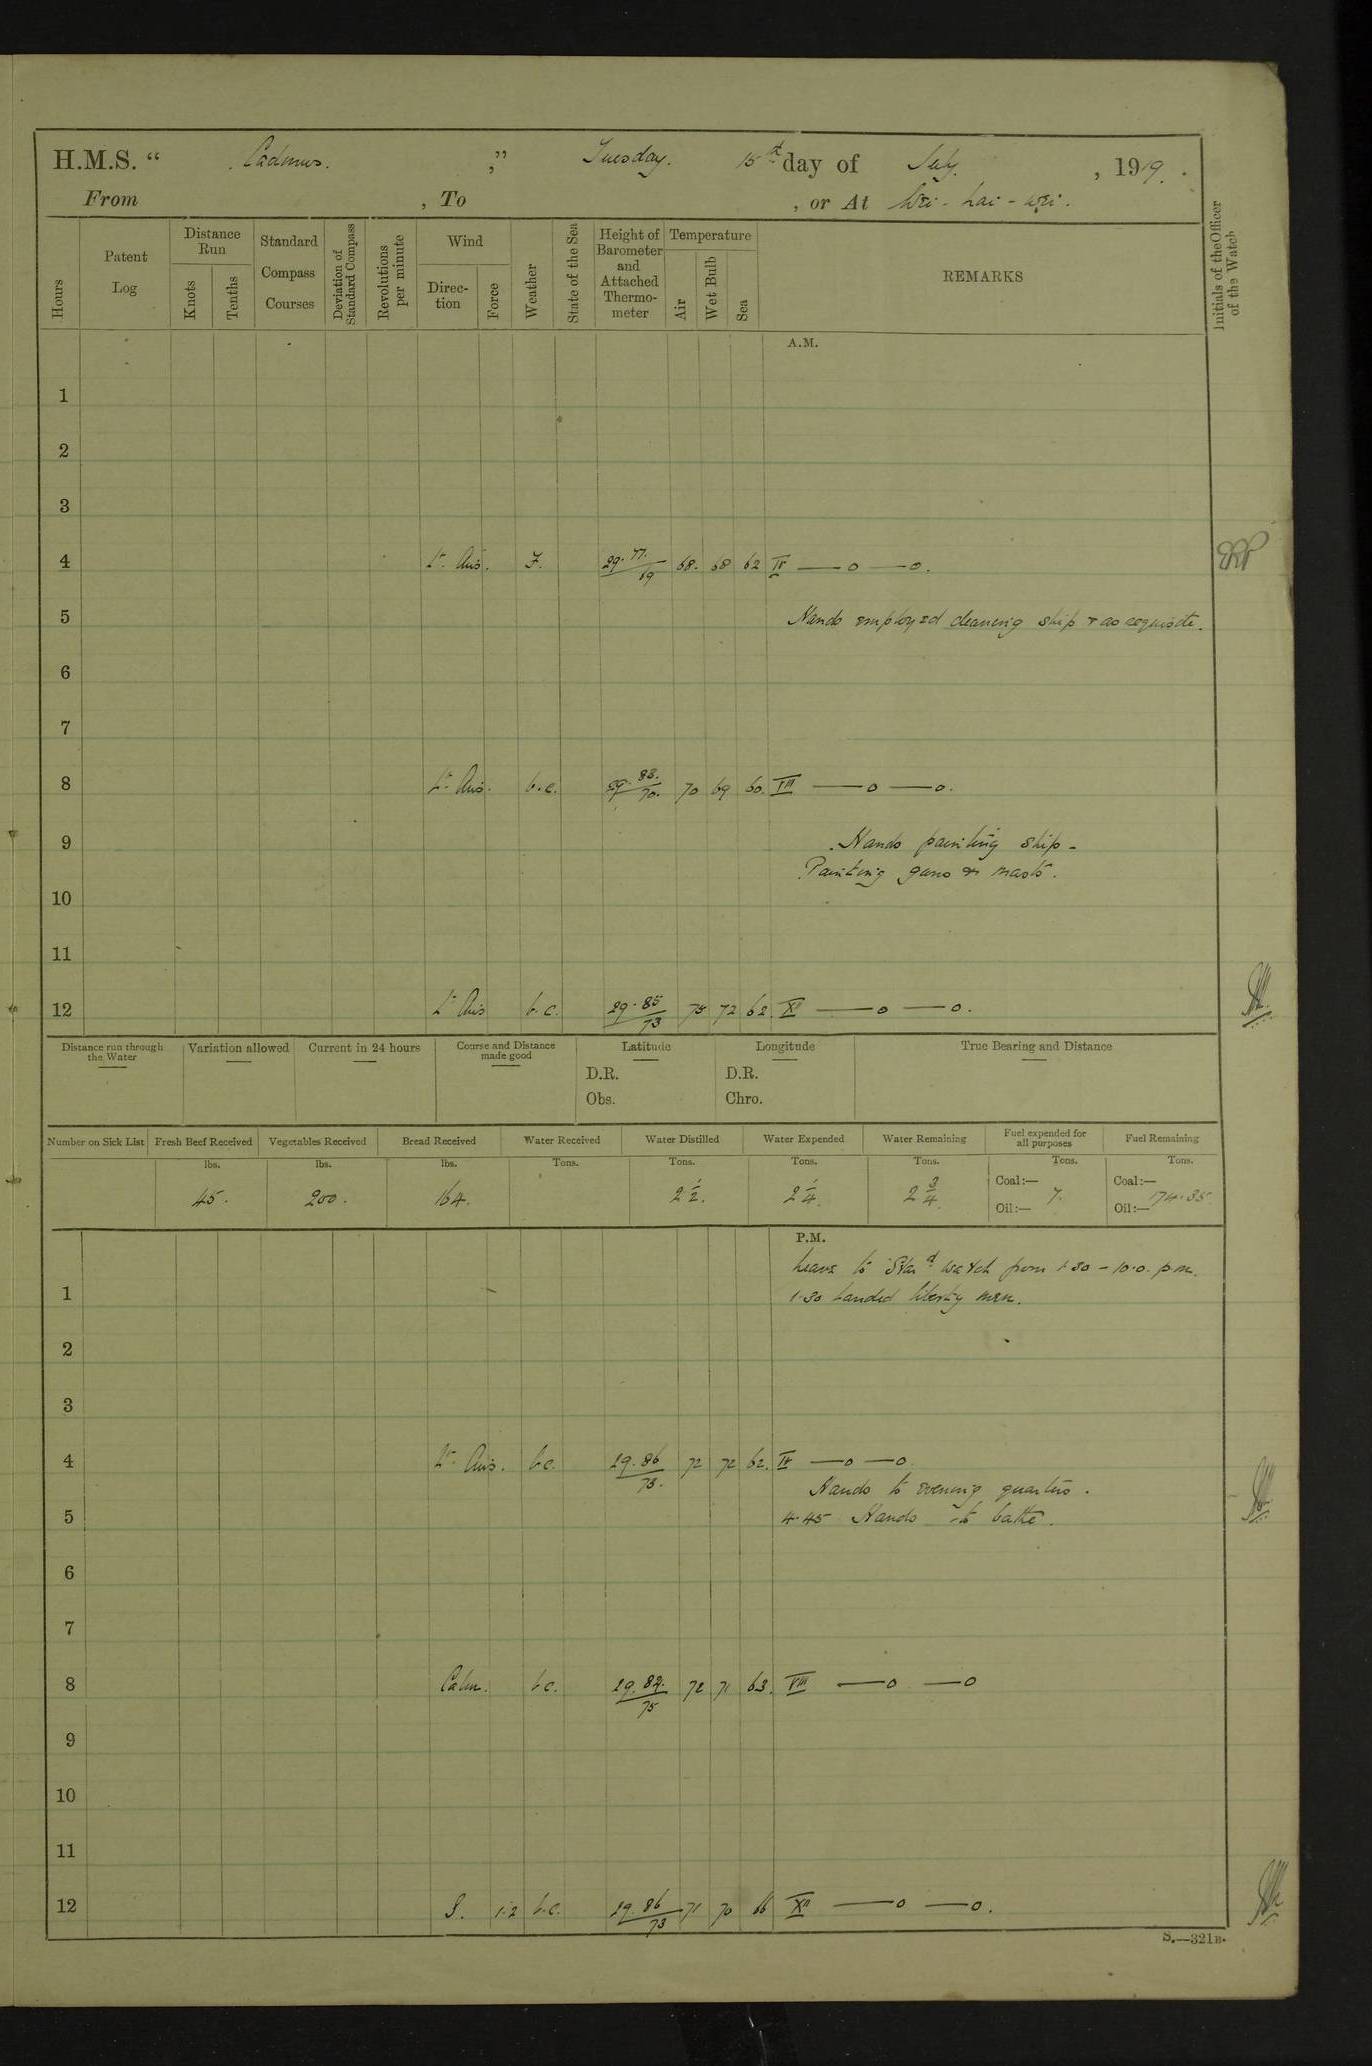 H.M.S. “ Cadmus. ,” Tuesday. 15th day of July. , 1919.
From , To , or At Wei-hai-wei.
Hours Patent Log Distance Run Knots Tenths Standard Compass Courses Deviation of Standard Compass Revolutions per minute Wind Direction Force Weather State of the Sea Height of Barometer and Attached Thermometer Temperature Air Wet Bulb Sea REMARKS Initials of the Officer of the Watch
A.M.
1
2
3
4 Lt. Airs. F. 29.77. 69 68. 68 62 IV —o —o.
5 Hands employed cleaning ship & as requisite.
6
7
8 Lt. Airs. b.c. 29.83. 70. 70 69 60. VIII —o —o.
9 Hands painting ship-
Painting guns & masts.
10
11
12 Lt. Airs b.c. 29.85 73 75 72 62. XII —o —o.
Distance run through the Water Variation allowed Current in 24 hours Course and Distance made good Latitude Longitude True Bearing and Distance
D.R. D.R.
Obs. Chro.
Number on Sick List Fresh Beef Received Vegetables Received Bread Received Water Received Water Distilled Water Expended Water Remaining Fuel expended for all purposes Fuel Remaining
lbs. lbs. lbs. Tons. Tons. Tons. Tons. Tons. Tons.
45. 200. 164. 2½. 2¼. 2¾. Coal:— 7. Coal:— 174.35
Oil:— Oil:—
P.M.
Leave to Stard watch from 1.30 - 10.0. p.m.
1 1.30 Landed liberty men.
2
3
4 Lt. Airs. b.c. 29.86 73. 72 72 62. IV —o —o.
Hands to evening quarters.
5 4.45 Hands to bathe.
6
7
8 Calm. b.c. 29.82. 75 72 71 63. VIII —o —o
9
10
11
12 S. 1.2 b.c. 29.86 73 71 70 66 XII —o —o.
S.—321B.